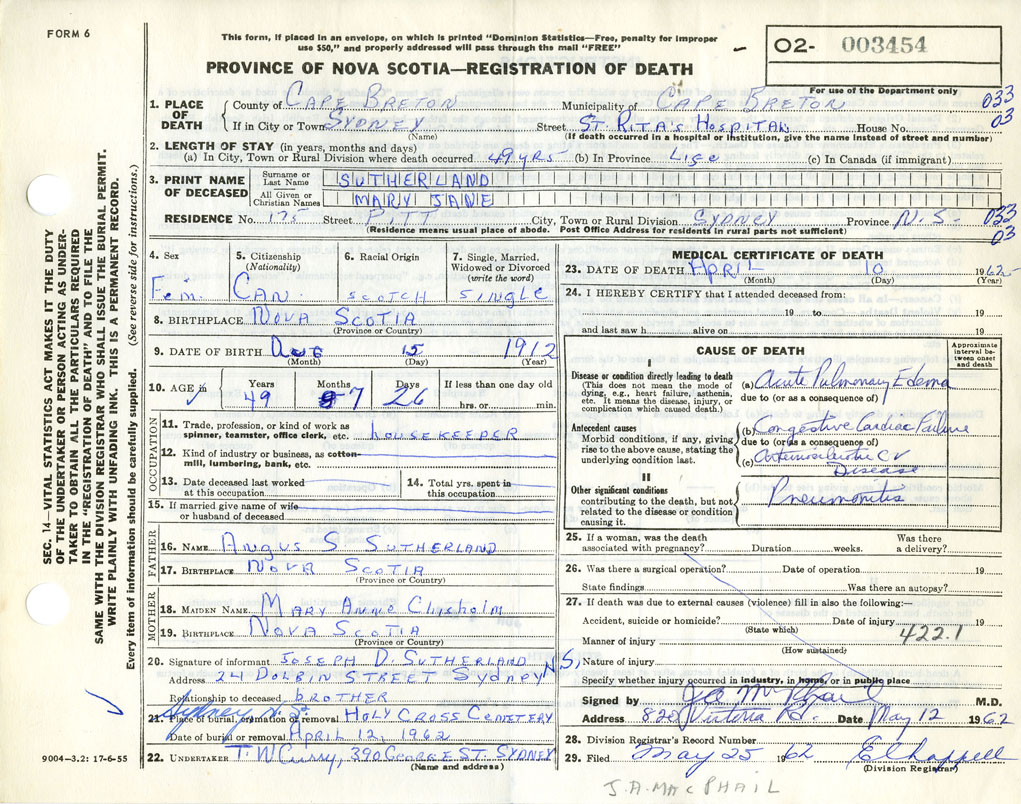 FORM 6
This form, if placed in an envelope, on which is printed "Dominion Statistics—Free, penalty for improper
use $50," and properly addressed will pass through the mail "FREE"
O2- 003454
PROVINCE OF NOVA SCOTIA—REGISTRATION OF DEATH
For use of the Department only
1. PLACE OF DEATH County of CAPE BRETON Municipality of CAPE BRETON 033
If in City or Town SYDNEY Street ST. RITA'S HOSPITAL House No. 03
(Name) (If death occurred in a hospital or institution, give the name instead of street and number)
2. LENGTH OF STAY (in years, months and days)
(a) In City, Town or Rural Division where death occurred 49 YRS (b) In Province LIFE (c) In Canada (if immigrant)
3. PRINT NAME OF DECEASED Surname or Last Name SUTHERLAND
All Given or Christian Names MARY JANE
RESIDENCE No. 175 Street PITT City, Town or Rural Division SYDNEY Province N.S. 033
(Residence means usual place of abode. Post Office Address for residents in rural parts not sufficient) 03
4. Sex 5. Citizenship (Nationality) 6. Racial Origin 7. Single, Married, Widowed or Divorced (write the word)
Fem. CAN. SCOTCH SINGLE
8. BIRTHPLACE NOVA SCOTIA
(Province or Country)
9. DATE OF BIRTH AUG 15 1912
(Month) (Day) (Year)
10. AGE in Years Months Days If less than one day old
49 7 26 hrs. or min.
OCCUPATION
11. Trade, profession, or kind of work as spinner, teamster, office clerk, etc. HOUSEKEEPER
12. Kind of industry or business, as cotton-mill, lumbering, bank, etc.
13. Date deceased last worked at this occupation 14. Total yrs. spent in this occupation
15. If married give name of wife or husband of deceased
FATHER
16. NAME ANGUS S SUTHERLAND
17. BIRTHPLACE NOVA SCOTIA
(Province or Country)
MOTHER
18. MAIDEN NAME MARY ANNE Chisholm
19. BIRTHPLACE NOVA SCOTIA
(Province or Country)
20. Signature of informant JOSEPH D. SUTHERLAND
Address 24 DOLBIN STREET SYDNEY N.S,
Relationship to deceased BROTHER
Sydney N.S.
21. Place of burial, cremation or removal HOLY CROSS CEMETERY
Date of burial or removal APRIL 12, 1962
22. UNDERTAKER T. W Curry, 390 GEORGE ST. SYDNEY
(Name and address)
MEDICAL CERTIFICATE OF DEATH
23. DATE OF DEATH APRIL 10 1962
(Month) (Day) (Year)
24. I HEREBY CERTIFY that I attended deceased from:
19 to 19
and last saw h alive on 19
CAUSE OF DEATH
Approximate interval between onset and death
I
Disease or condition directly leading to death
(This does not mean the mode of dying, e.g., heart failure, asthenia, etc. It means the disease, injury, or complication which caused death.)
(a) Acute Pulmonary Edema
due to (or as a consequence of)
Antecedent causes
Morbid conditions, if any, giving rise to the above cause, stating the underlying condition last.
(b) Congestive Cardiac Failure
due to (or as a consequence of)
(c) Arteriosclerotic C V
Disease
II
Other significant conditions
contributing to the death, but not related to the disease or condition causing it.
Pneumonitis
25. If a woman, was the death associated with pregnancy? Duration weeks. Was there a delivery?
26. Was there a surgical operation? Date of operation 19
State findings Was there an autopsy?
27. If death was due to external causes (violence) fill in also the following:—
Accident, suicide or homicide? Date of injury 19
(State which) 422.1
Manner of injury
(How sustained)
Nature of injury
Specify whether injury occurred in industry, in home, or in public place
Signed by J A McPhail M.D.
Address 820 Victoria Rd. Date May 12 1962
28. Division Registrar's Record Number
29. Filed May 25 1962 E L Chappell
(Division Registrar)
J.A. MACPHAIL
SEC. 14—VITAL STATISTICS ACT MAKES IT THE DUTY
OF THE UNDERTAKER OR PERSON ACTING AS UNDER-
TAKER TO OBTAIN ALL THE PARTICULARS REQUIRED
IN THE "REGISTRATION OF DEATH" AND TO FILE THE
SAME WITH THE DIVISION REGISTRAR WHO SHALL ISSUE THE BURIAL PERMIT.
WRITE PLAINLY WITH UNFADING INK. THIS IS A PERMANENT RECORD.
Every item of information should be carefully supplied. (See reverse side for instructions.)
9004—3.2: 17-6-55